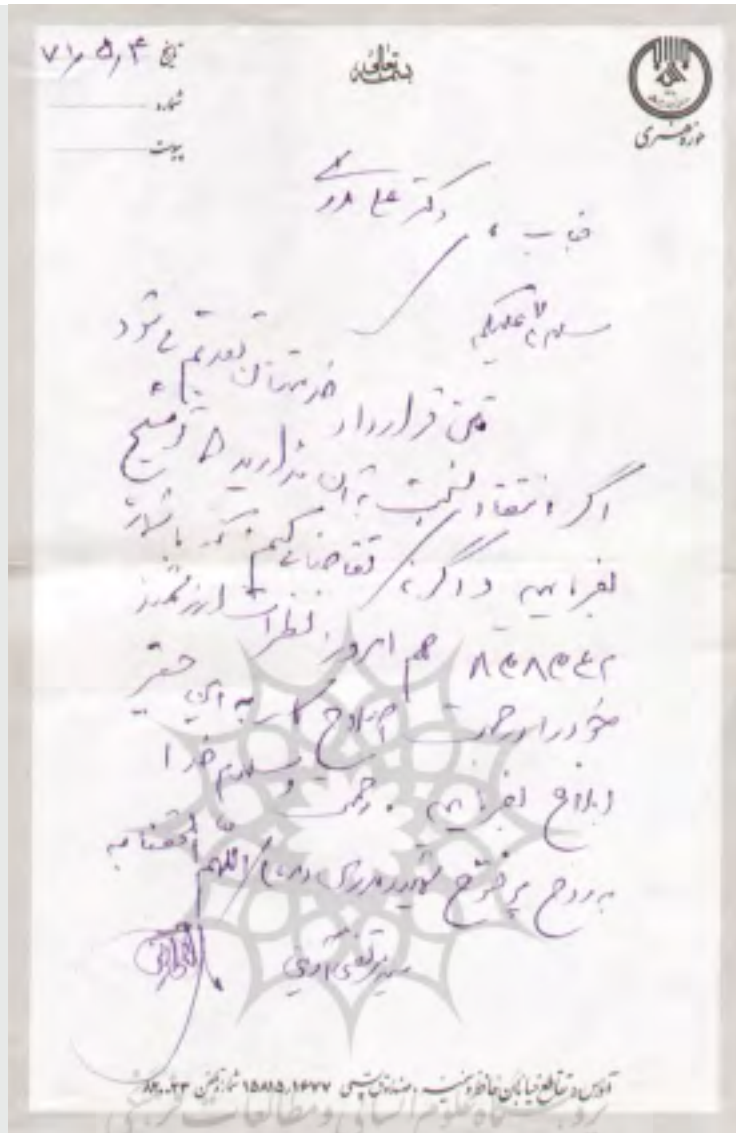 بسمه تعالی
حوزه هنری
تاریخ ۷۱٫۵٫۴
شماره
پیوست
جناب دکتر علی
سلام علیکم
متن قرارداد خدمتتان تقدیم می‌شود
اگر انتقاد نسبت به آن ندارید توضیح
بفرمایید و اگر تقاضا می‌کنم با شماره
۸۵۸۵۴۲ هم امروز نظرات ارزشمند
خود را جهت اصلاح کار به این حقیر
ابلاغ بفرمایید. رحمت و سلام خدا
به روح پرفتوح شهید اللهم
سید مرتضی آوینی
آدرس: تقاطع خیابان حافظ و سمیه، صندوق پستی ۱۵۸۱۵٫۱۶۷۷ شماره تلفن ۸۲۰۰۲۳
پژوهشگاه علوم انسانی و مطالعات فرهنگی